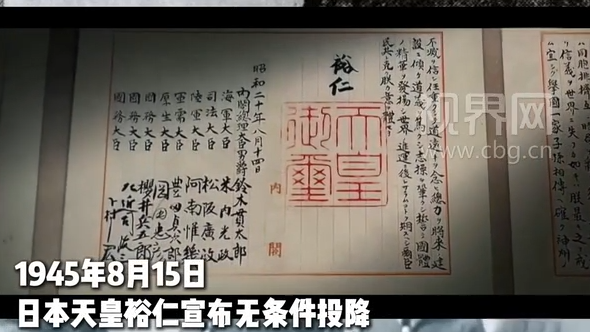 ハ同胞排擠互ニ
信義ヲ世界ニ失フカ如キハ朕最モ之ヲ戒
ム宜シク擧國一家子孫相傳ヘ確ク神州ノ
不滅ヲ信シ任重クシテ道遠キヲ念ヒ總力ヲ將來ノ建
設ニ傾ケ道義ヲ篤クシ志操ヲ鞏クシ誓テ國體
ノ精華ヲ發揚シ世界ノ進運ニ後レサラムコトヲ期スヘシ爾臣
民其レ克ク朕カ意ヲ體セヨ
裕仁
天皇
御璽
內閣
昭和二十年八月十四日
內閣總理大臣男爵 鈴木貫太郎
海軍大臣 米內光政
司法大臣 松阪廣政
陸軍大臣 阿南惟幾
軍需大臣 豐田貞次郎
厚生大臣 岡田忠彥
國務大臣 櫻井兵五郎
國務大臣 左近司政三
國務大臣 下村宏
视界网
www.cbg.cn
1945年8月15日
日本天皇裕仁宣布无条件投降